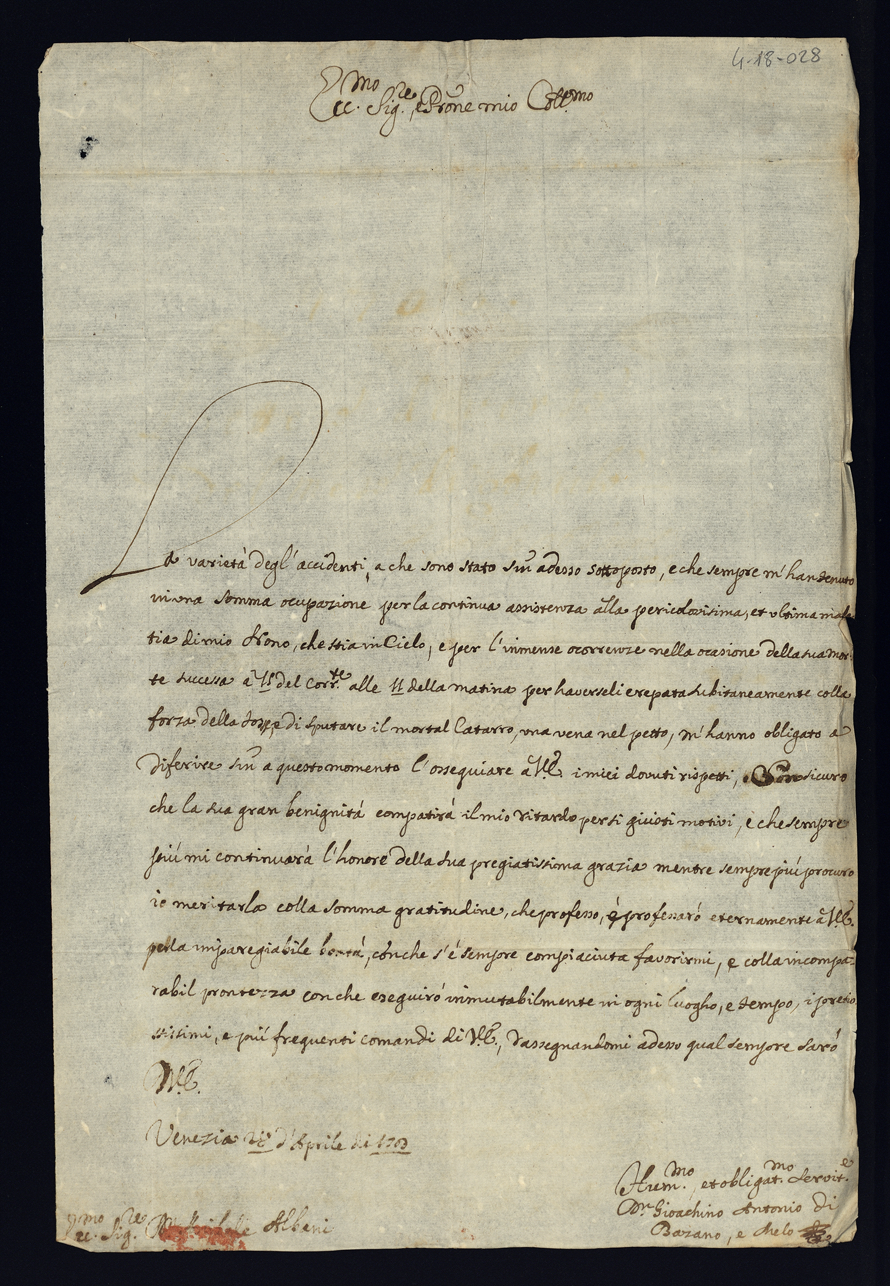 4-18-028
Ecc.mo Sig.re, e Prōne mio Coll.mo
La varietá degl' accidenti, a che sono stato sin' adesso sottoposto, e che sempre m'han tenuto
in una somma ocupazione per la continua assistenza alla pericolosisima, et ultima mala-
tia di mio Nono, che stia in Cielo, e per l'inmense ocorrenze nella ocasione della sua mor-
te sucessa a 15 del Corr.te alle 11 della matina per haverseli crepata subitaneamente colla
forza della tosse, e di sputare il mortal Catarro, una vena nel petto, m'hanno obligato a
diferire sin' a questo momento l'ossequiare à V.E. i miei dovuti rispetti, Son sicuro
che la sua gran benignitá compatirá il mio ritardo per si giusti motivi, e che sempre
piú mi continuará l'honore della sua pregiatissima grazia mentre sempre piú procuro
io meritarla colla somma gratitudine, che professo, é professaró eternamente à V.E.
pella imparegiabile bontá, con che s'é sempre compiaciuta favorirmi, e colla incompa-
rabil prontezza con che eseguiró inmutabilmente in ogni luogho, e tempo, i prezio-
sissimi, e piú frequenti comandi di V.E., rassegnandomi adesso qual sempre saró
D V.E.
Venezia d'Aprile di 1703
Hum.mo, et obligat.mo Servit.e
Dn. Gioachino Antonio di
Bazano, e Melo
Sig.re Albani